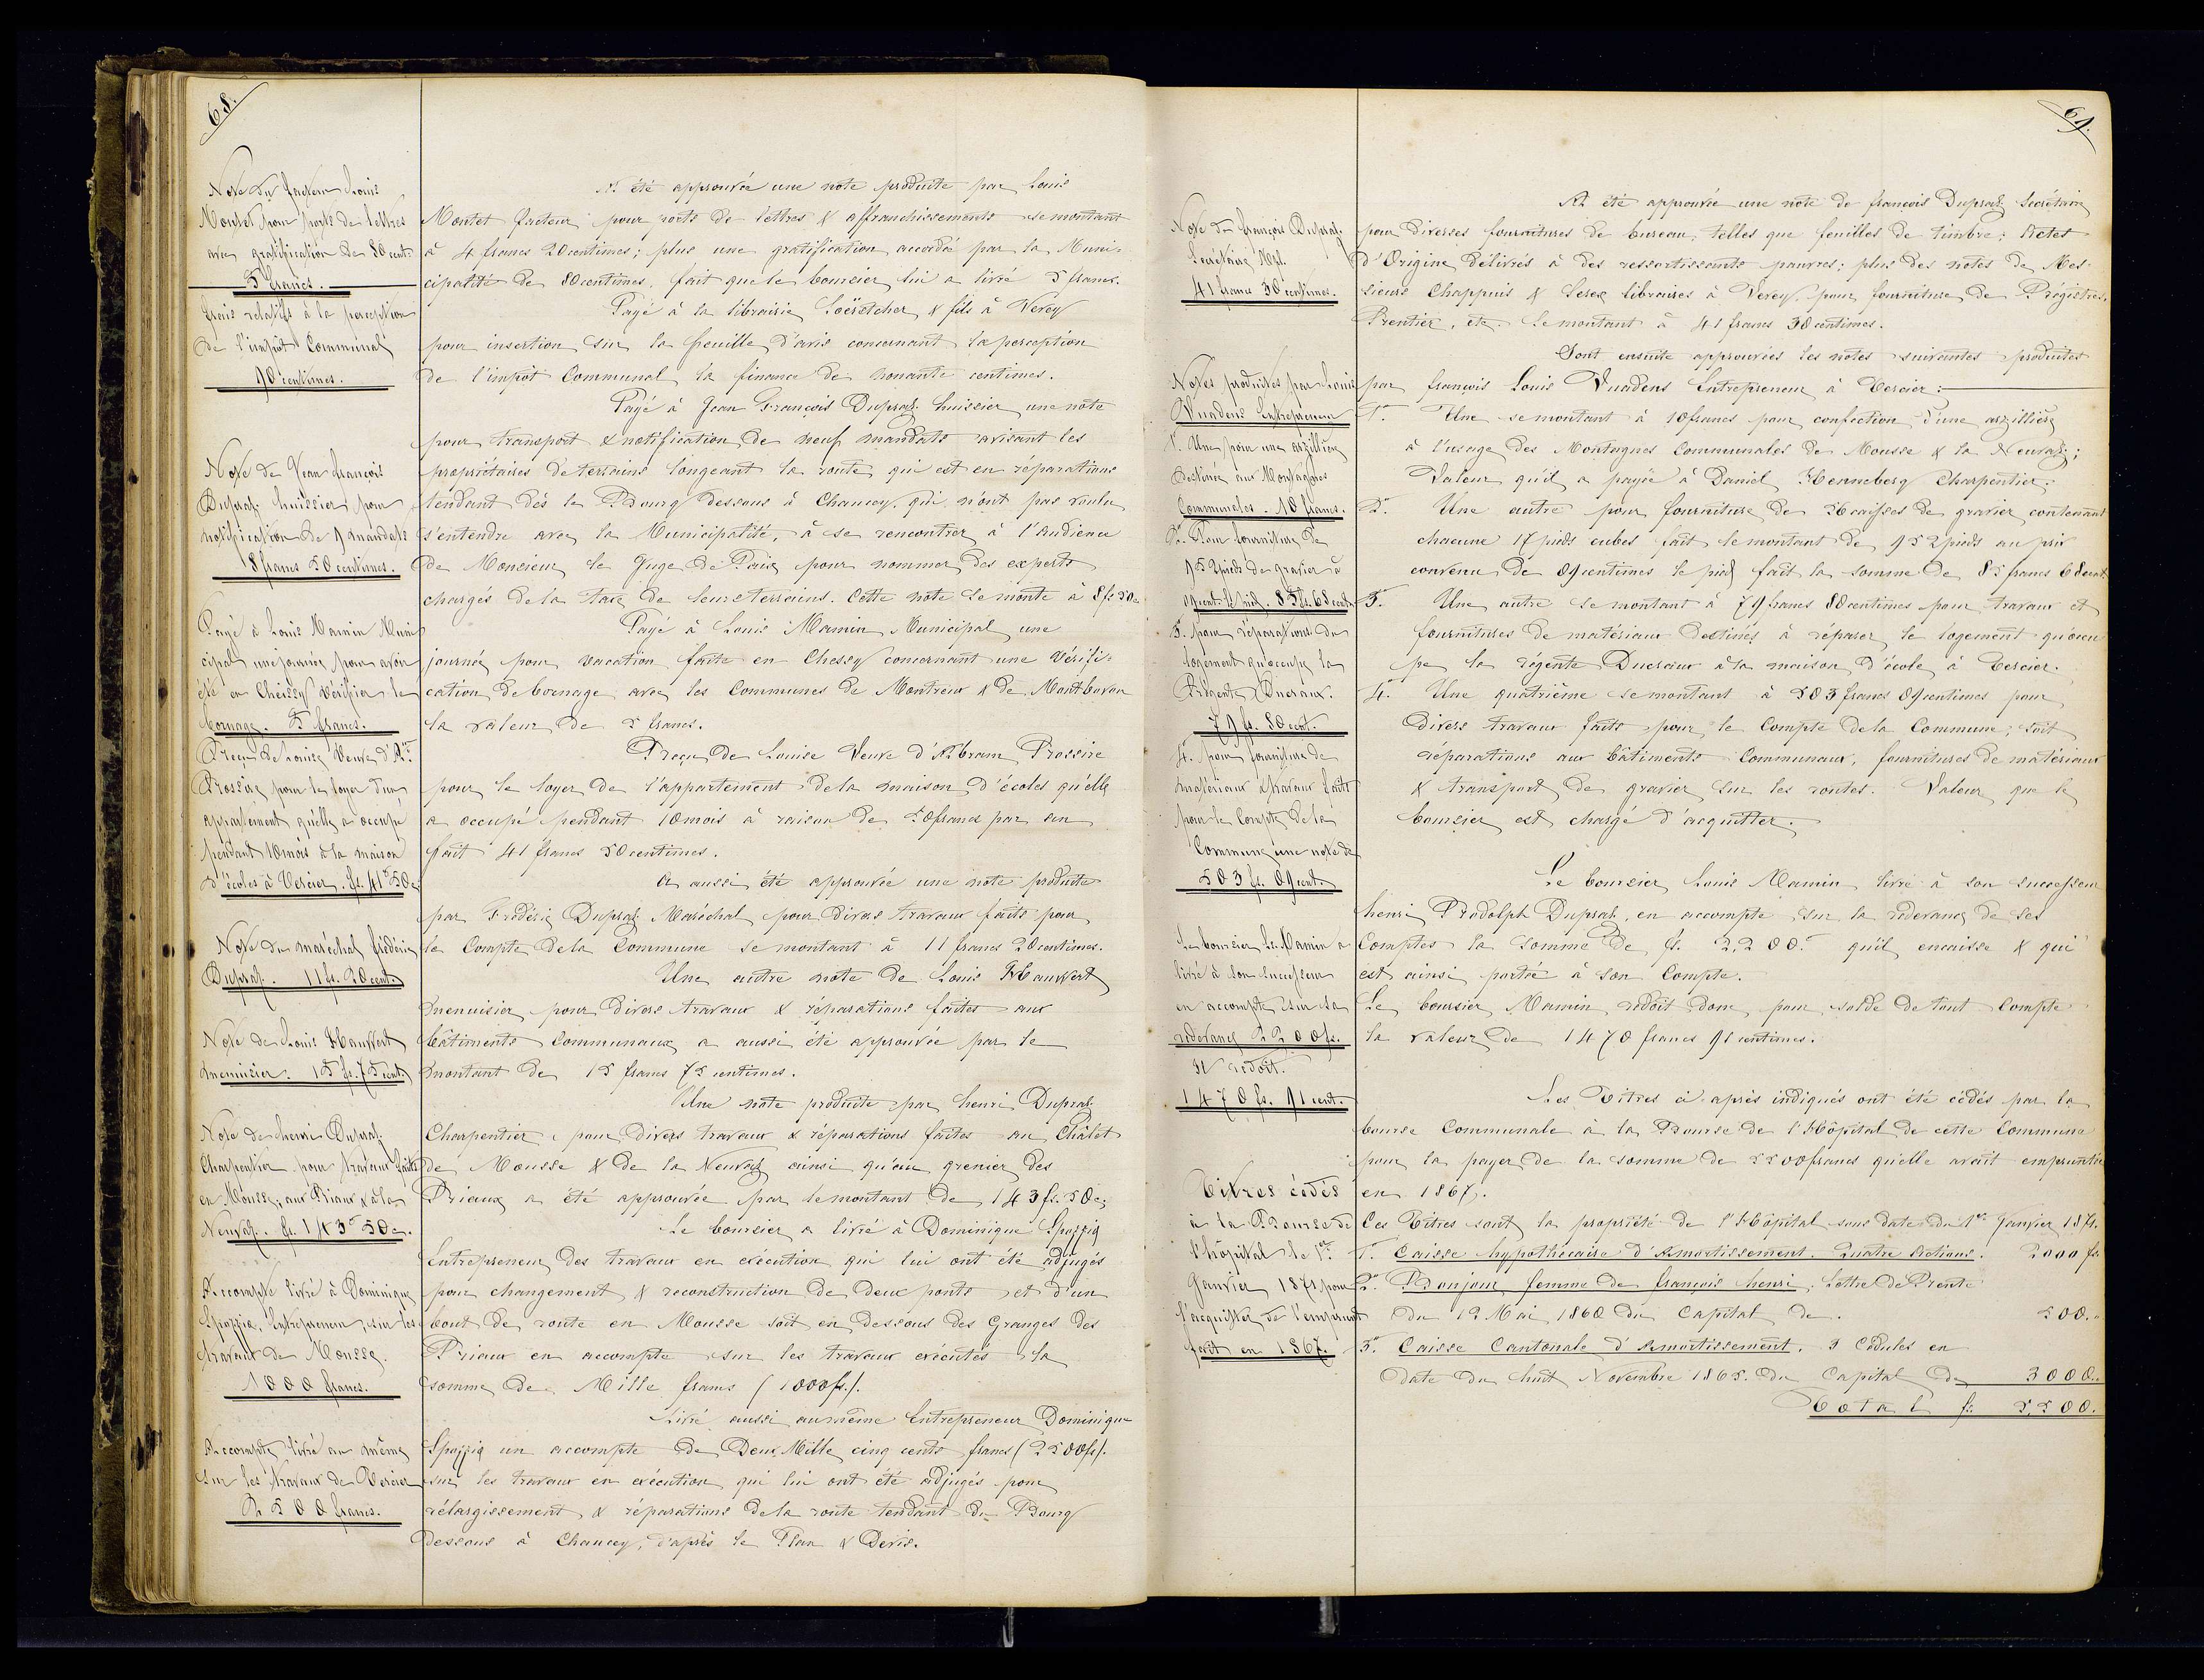 68.
Note du facteur Louis
Montet pour ports de lettres
avec gratification de 80 cent.
5 francs.
frais relatifs à la perception
de l'impôt Communal
90 centimes.
Note de Jean François
Dupraz huissier pour
notification de 9 mandats
8 francs 50 centimes.
Payé à Louis Mamin Muni
cipal une journée pour avoir
été en Chessy vérifier le
bornage. 5 francs.
Reçu de Louise Veuve d'Am
Rossire pour le loyer d'un
appartement qu'elle a occupé
pendant 10 mois à la maison
d'écoles à Vercier. fs. 41" 50 c.
Note du maréchal frédéric
Dupraz. 11 fs. 20 cent.
Note de Louis Hauwert
menuisier. 15 fs. 75 cent.
Note de henri Dupraz
Charpentier pour travaux faits
en Mousse, aux Priaux & à la
Neuvaz. fs. 143" 50 c.
Accompte livré à Dominique
Spozzia, Entrepreneur, sur les
travaux de Mousse.
1000 francs.
Accompte livré au même
sur les travaux de Vercier
2500 francs.
A été approuvée une note produite par Louis
Montet facteur pour ports de lettres & affranchissements se montant
à 4 francs 20 centimes; plus une gratification accordée par la Muni-
cipalité de 80 centimes, fait que le boursier lui a livré 5 francs.
Payé à la librairie Loërtscher & fils à Vevey
pour insertion sur la feuille d'avis concernant la perception
de l'impôt Communal la finance de nonante centimes.
Payé à Jean François Dupraz huissier une note
pour transport & notification de neuf mandats avisant les
propriétaires de terrains longeant la route qui est en réparations
tendant dès le Bourg dessous à Chaucey qui n'ont pas voulu
s'entendre avec la Municipalité, à se rencontrer à l'audience
de Monsieur le Juge de Paix pour nommer des experts
chargés de la taxe de leurs terrains. Cette note se monte à 8 fs. 50 c
Payé à Louis Mamin Municipal une
journée pour vacation faite en Chessy concernant une vérifi-
cation de bornage avec les Communes de Montreux & de Montbovon
la valeur de 5 francs.
Reçu de Louise Veuve d'Abram Rossire
pour le loyer de l'appartement de la maison d'écoles qu'elle
a occupé pendant 10 mois à raison de 50 francs par an
fait 41 francs 50 centimes.
A aussi été approuvée une note produite
par Frédéric Dupraz Maréchal pour divers travaux faits pour
le Compte de la Commune se montant à 11 francs 20 centimes.
Une autre note de Louis Hauwert
menuisier pour divers travaux & réparations faites aux
bâtiments Communaux a aussi été approuvée par le
montant de 15 francs 75 centimes.
Une note produite par henri Dupraz
Charpentier pour divers travaux & réparations faites au Châlet
de Mousse & de la Neuvaz ainsi qu'au grenier des
Priaux a été approuvée par le montant de 143 fs. 50 c.
Le boursier a livré à Dominique Spozzia
Entrepreneur des travaux en exécution qui lui ont été adjugés
pour changement & reconstruction de deux ponts et d'un
bout de route en Mousse soit en dessous des Granges des
Priaux en accompte sur les travaux exécutés la
somme de Mille francs (1000 fs.).
Livré aussi au même Entrepreneur Dominique
Spozzia un accompte de Deux Mille cinq cents francs (2500 fs).
sur les travaux en exécution qui lui ont été adjugés pour
rélargissement & réparations de la route tendant du Bourg
dessous à Chaucey, d'après le Plan & Devis.
69.
Note de François Dupraz
Secrétaire Mpl.
41 francs 30 centimes.
Notes produites par Louis
Vuadens Entrepreneur
1° Une pour une arzillière
destinée aux Montagnes
Communales. 10 francs.
2° Pour fourniture de
952 pieds de gravier à
09 cent. le pied. 85 fs. 68 cent.
3. pour réparations du
logement qu'occupe la
Régente Ducraux.
79 fs. 80 cent.
4. pour fourniture de
matériaux & travaux faits
pour le Compte de la
Commune une note de
503 fs. 09 cent.
Le boursier Ls. Mamin a
livré à son successeur
en accompte sur sa
redevance 2200 fs.
Il redoit.
1470 fs. 91 cent.
Titres cédés
à la Bourse de
l'hôpital le 1er
Janvier 1871 pour
l'acquitter de l'emprunt
fait en 1867.
A été approuvée une note de françois Dupraz Secrétaire
pour diverses fournitures de bureau, telles que feuilles de timbre; Actes
d'Origine délivrés à des ressortissants pauvres; plus des notes de Mes-
sieurs Chappuis & Serex libraires à Vevey pour fourniture de Régistres,
Rentier, etc. Se montant à 41 francs 30 centimes.
Sont ensuite approuvées les notes suivantes produites
par françois Louis Vuadens Entrepreneur à Vercier:
1° Une se montant à 10 francs pour confection d'une arzillière
à l'usage des Montagnes Communales de Mousse & la Neuvaz;
Valeur qu'il a payée à Daniel Henneberg Charpentier.
2° Une autre pour fourniture de 56 caisses de gravier contenant
chacune 17 pieds cubes fait le montant de 952 pieds au prix
convenu de 09 centimes le pied fait la somme de 85 francs 68 cent
3° Une autre se montant à 79 francs 80 centimes pour travaux et
fournitures de matériaux destinés à réparer le logement qu'occu
pe la régente Ducraux à la maison d'école à Vercier.
4° Une quatrième se montant à 503 francs 09 centimes pour
divers travaux faits pour le Compte de la Commune; soit
réparations aux bâtiments Communaux, fournitures de matériaux
& transport de gravier sur les routes. Valeur que le
boursier est chargé d'acquitter.
Le boursier Louis Mamin livre à son successeur
henri Rodolph Dupraz, en accompte sur la redevance de ses
Comptes la somme de fs. 2,200." qu'il encaisse & qui
est ainsi portée à son Compte.
Le boursier Mamin redoit donc pour solde de tout Compte
la valeur de 1470 francs 91 centimes.
Les Titres ci-après indiqués ont été cédés par la
bourse Communale à la Bourse de l'Hôpital de cette Commune
pour la payer de la somme de 5500 francs qu'elle avait empruntée
en 1867.
Ces Titres sont la propriété de l'Hôpital sous date du 1er Janvier 1871.
1° Caisse hypothécaire d'Amortissement. Quatre Actions. 2000 fs.
2° Bonjour, femme de françois henri, Lettre de Rente
du 12 Mai 1860 du Capital de. 500."
3° Caisse Cantonale d'Amortissement. 3 Cédules en
date du huit Novembre 1865. du Capital de 3000."
Total fs. 5,500.